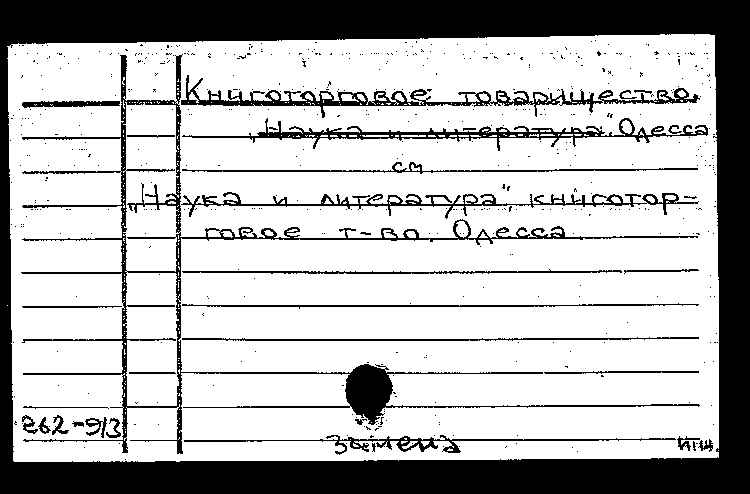 Книготорговое товарищество.
„Наука и литература". Одесса
см
„Наука и литература", книготор-
говое т-во. Одесса.
262-913
замена